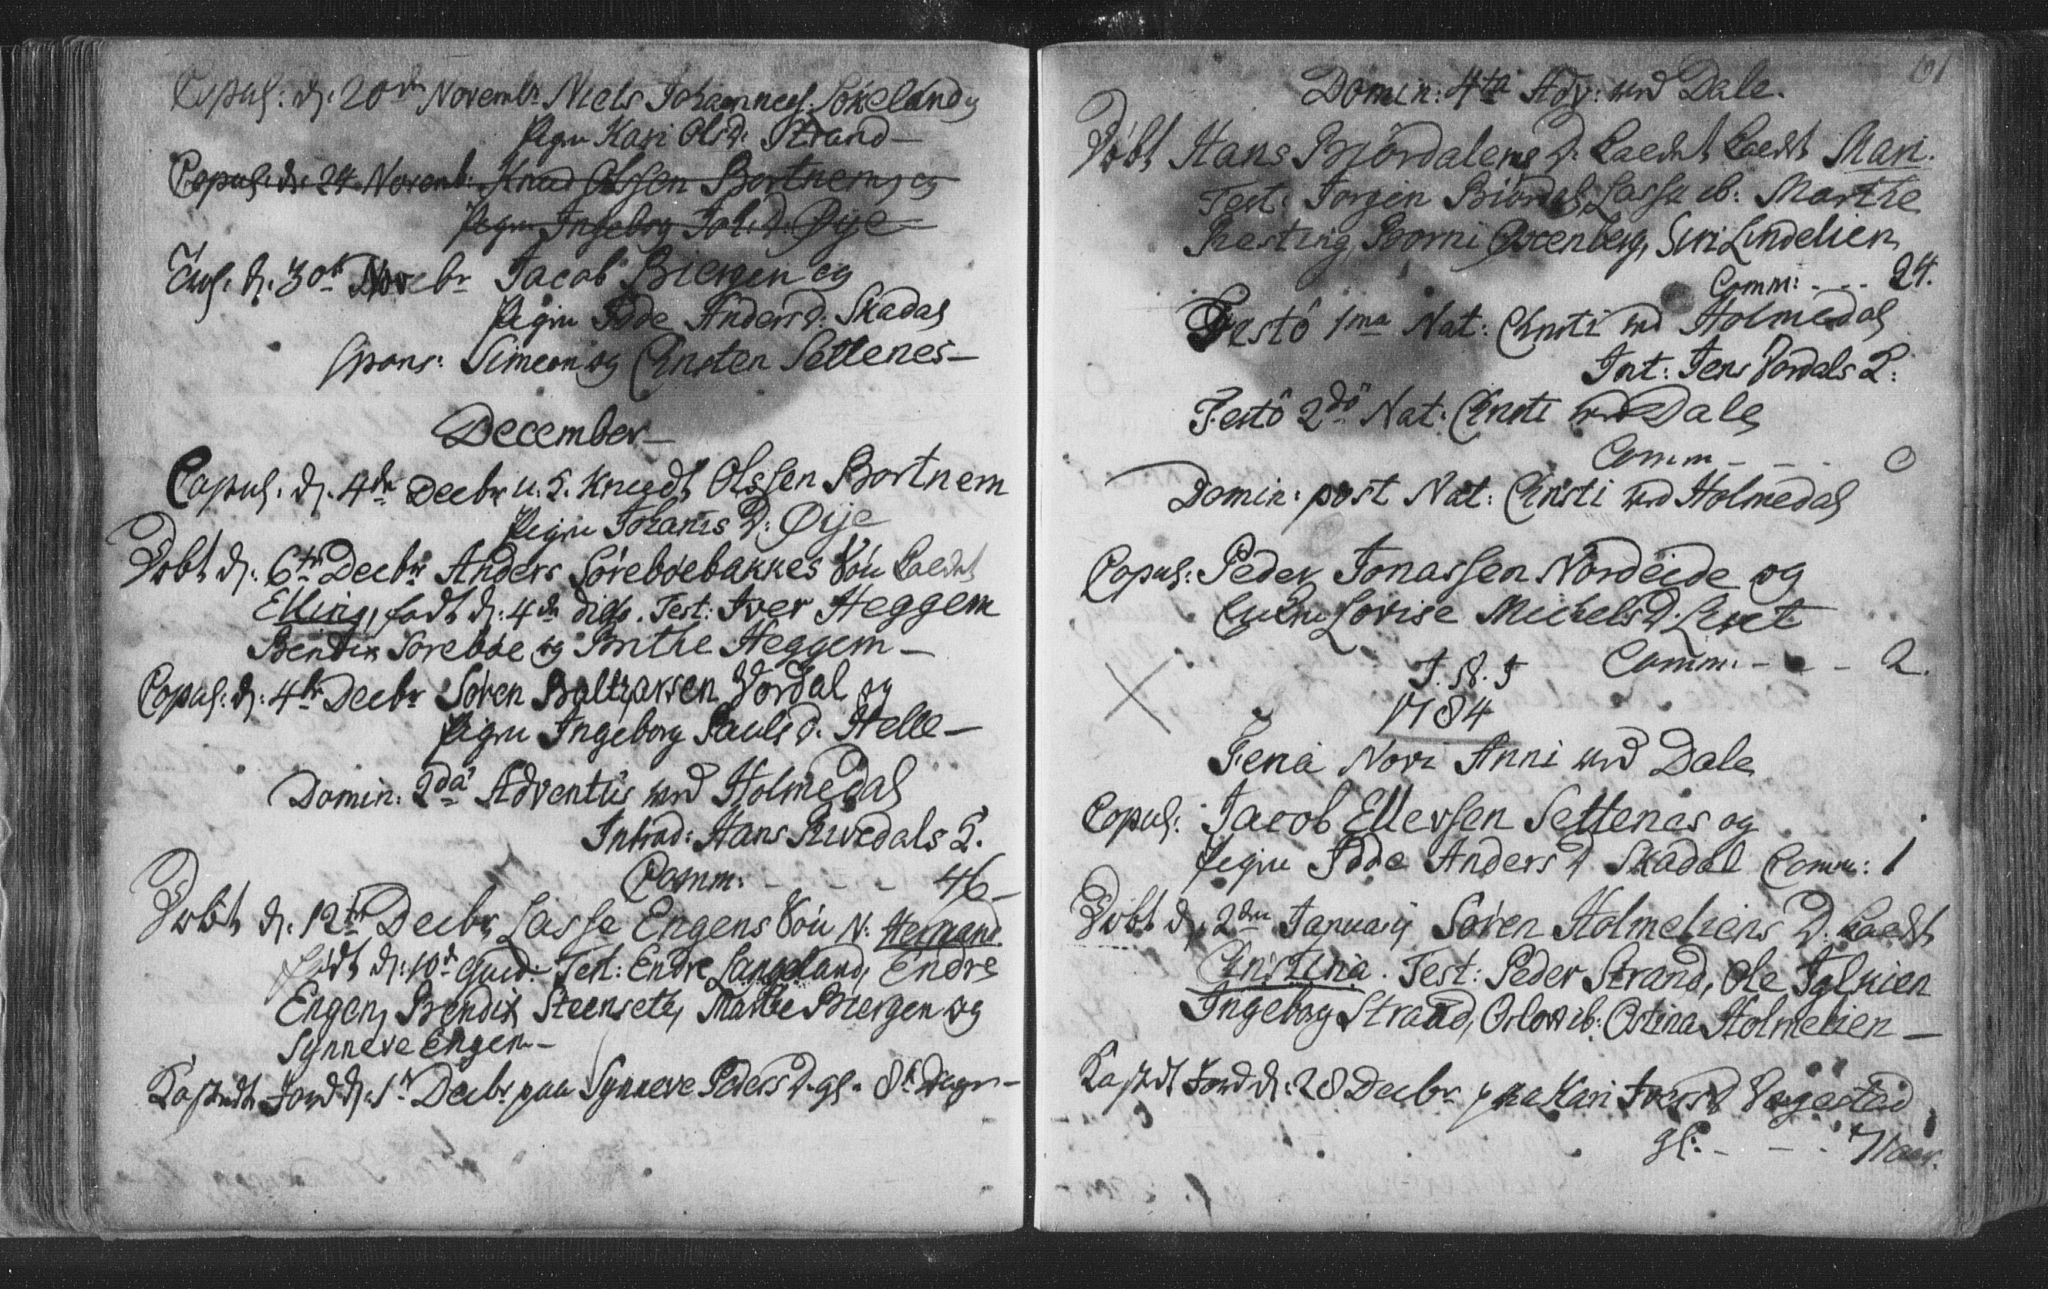 Copul: d. 20de Novembr Niels Johannes: Sokeland og
Pigen Kari Olsd. Strand
Copul: d. 24 Novemb: Knud Olssen Bortnem og
Pigen Ingeborg Joh: d: Øije
d. 30te Novebr Jacob Biergen og
Pigen Odde Andersd: Skadal
spons: Simeon og Christen Settenes
December
Copul. d. 4de Decbr u. S. Knudt Olssen Bortnem
Pigen Johanis D: Øije
Døbt d: 6te Decbr Anders Sørebøebakkes Søn kaldet
Elling, født d: 4de dito. Test: Iver Heggem
Bendix Sorebøe og Brithe Heggem
Copul: d: 4de Decbr Søren Baltzarsen Vordal og
Pigen Ingeborg Pauls D. Helle
Domin: 2da Adventus ved Holmedal
Introd: Hans Rivedals
Comm: - - - 46
Døbt d: 12te Decbr Lasse Engens Søn N: Hermand
født d: 10de Test: Endre Langeland, Endre
Engen, Bendix Steensete, Marthe Biergen og
Synneve Engen
Kastedt Jord d. 1te Decbr paa Synneve Peders D. gl. 8te Dage
101
Domin: 4ta Adv: ved Dale.
Døbt Hans Bjørdalens D. kaldt Mari.
Test: Jorgen Biørdal, Lasse ib: Marthe
Kesting, Borni Ostenberg, Siri Lindelien
Comm: - - - 24.
Festô 1ma Nat: Christi ved Holmedal
Int: Jens Vordals
Festô 2dô Nat: Christi ved Dale
Comm - - - 0
Domin: post Nat: Christi ved Holmedal
Copul: Peder Jonassen Nordeide og
Lovise Michels D.
Comm: - - - 2.
1784
Feria Novi Anni ved Dale
Copul: Jacob Ellersen Settenes og
Pigen Odde Anders D Skadal Comm: 1
Døbt d. 2den Januarij Søren Holmeliens D. kaldt
Christina. Test: Peder Strand, Ole
Ingeborg Strand, ib: Ostina Holmelien
Kastedt Jord d: 28 Decbr paa Kari Ivers D
gl: - - - 71 aar.